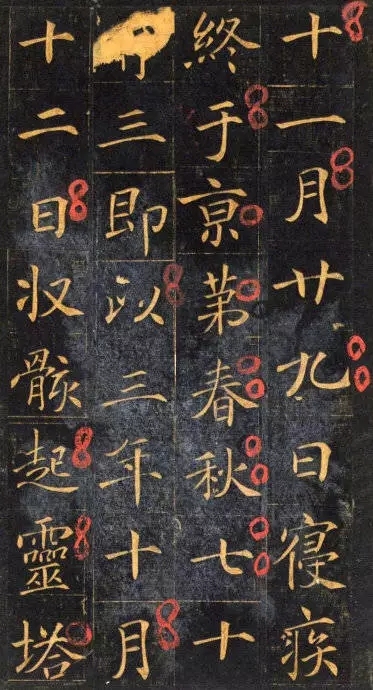 十一月廿九日寑疾
終于亰苐春秋七十
三即以三年十月
十二日収骸起靈塔